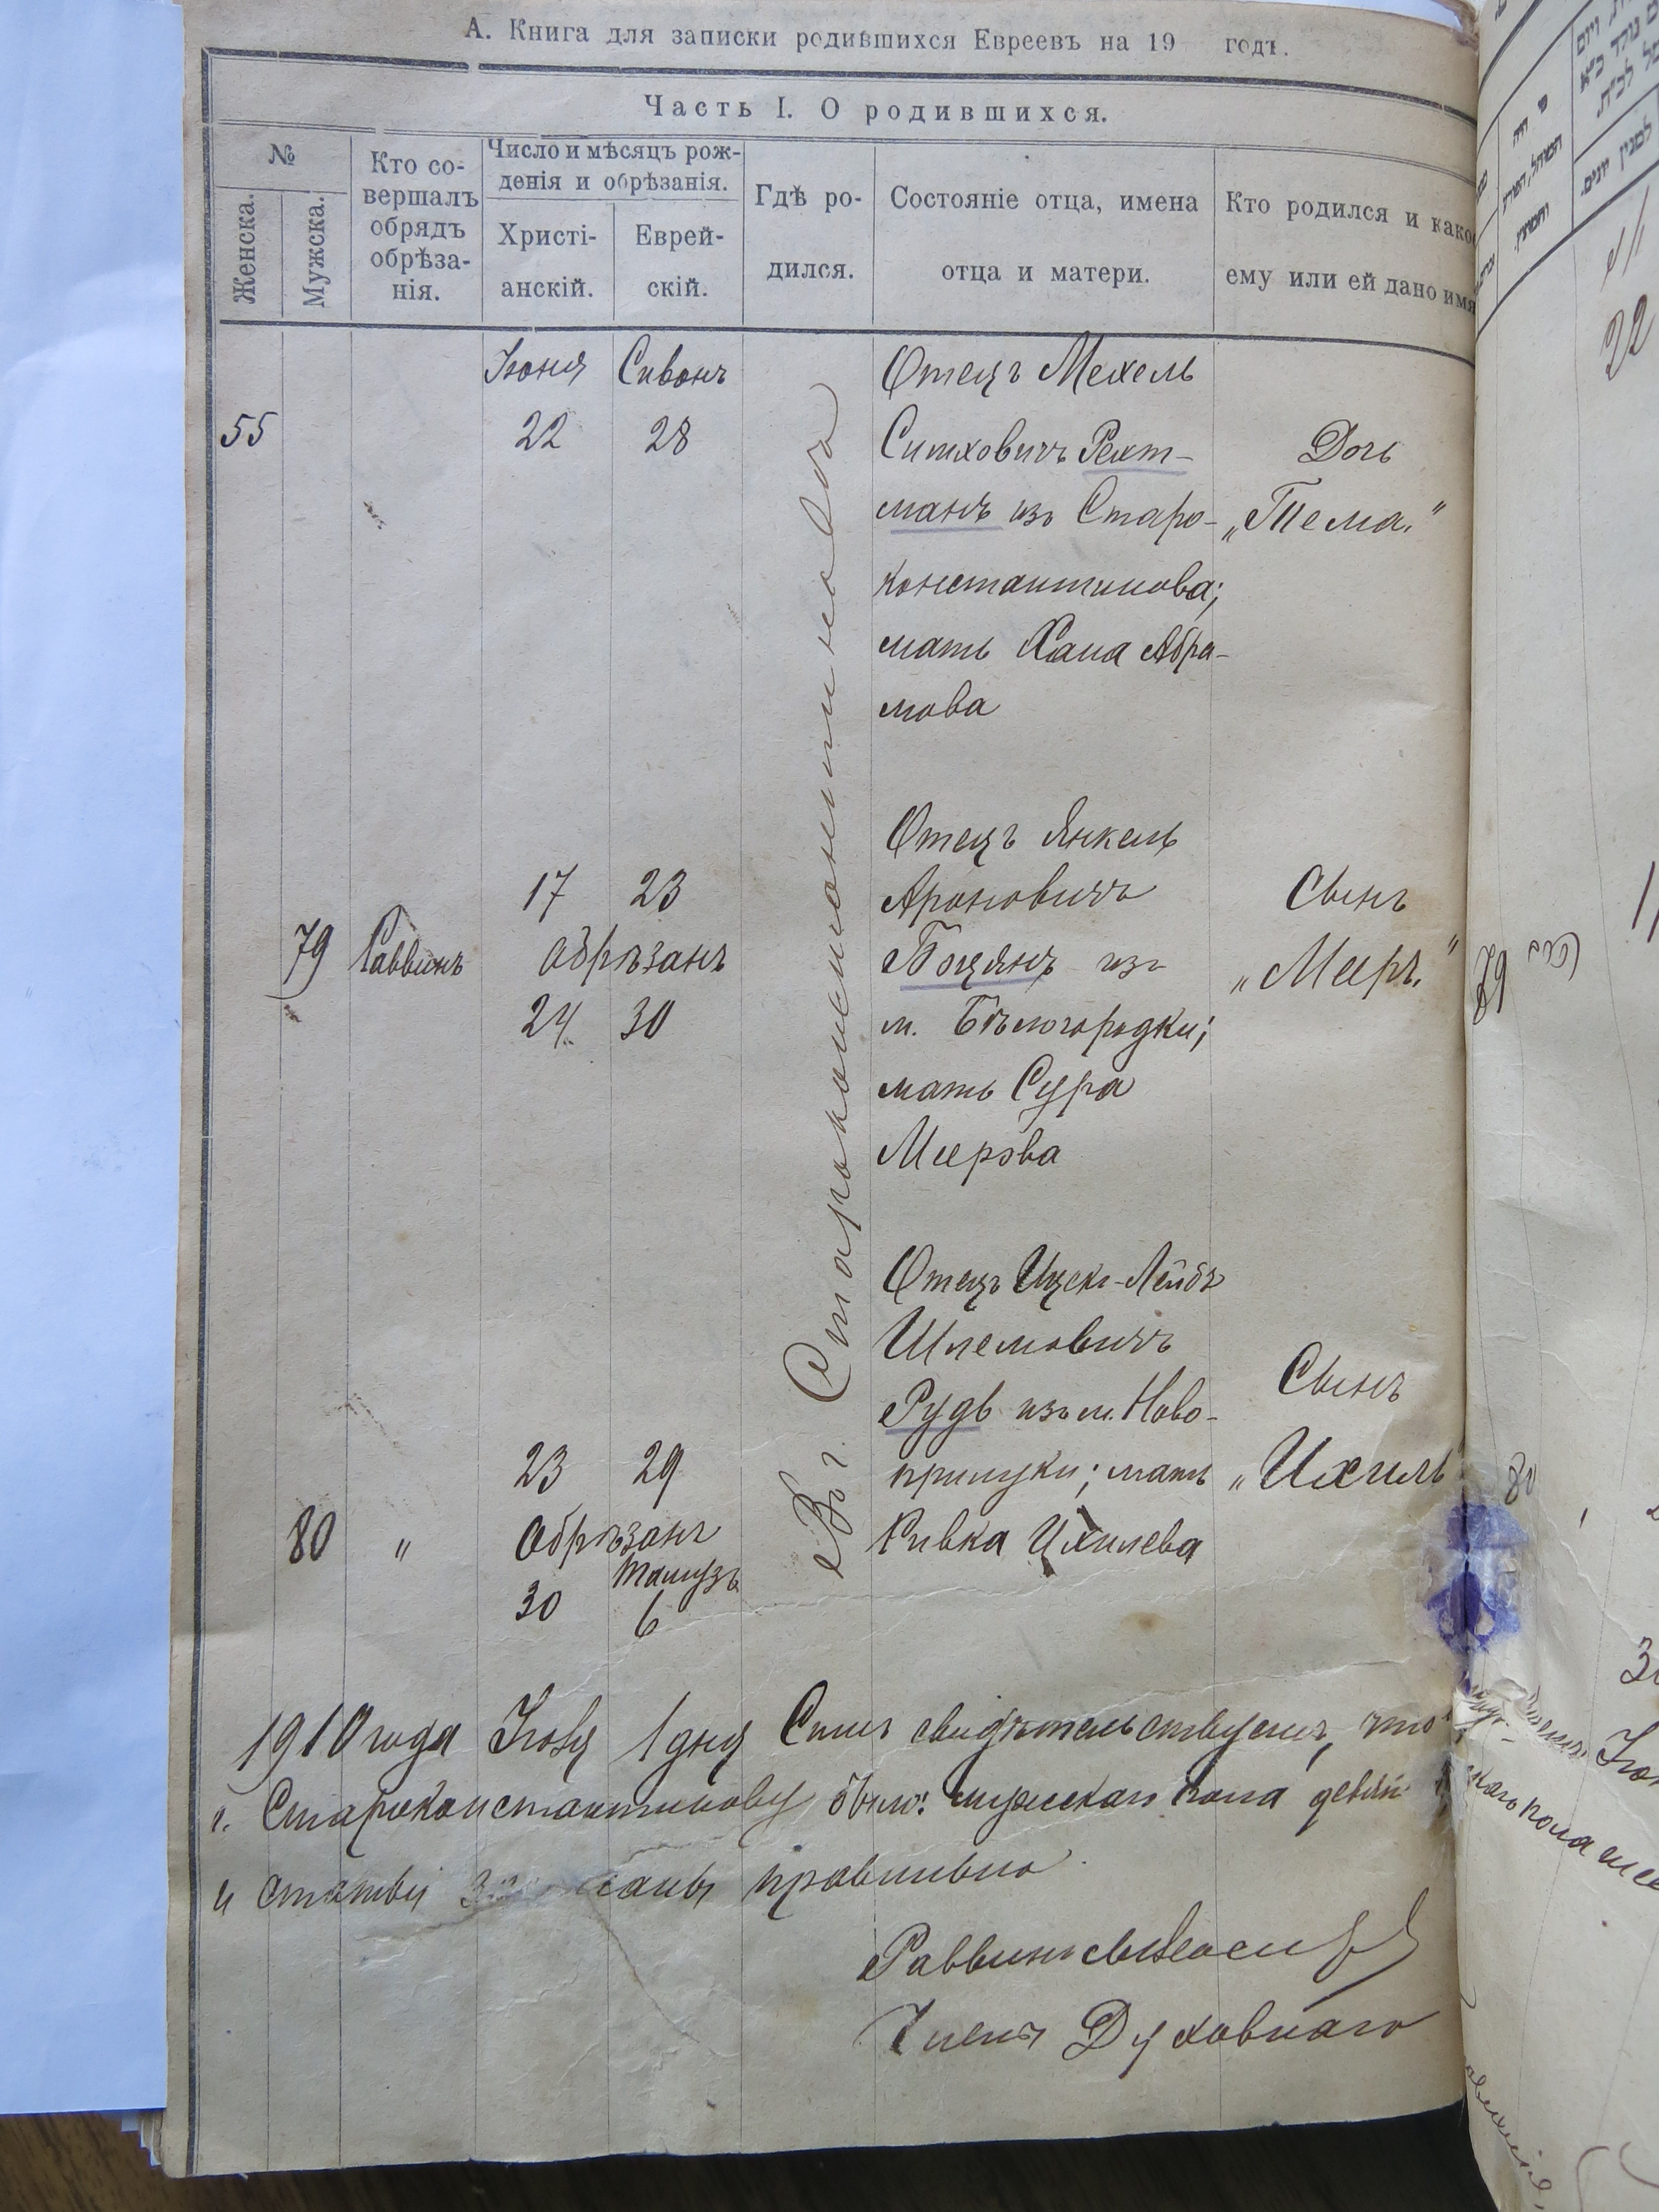 А. Книга для записки родившихся Евреевъ на 19 годъ.
Часть I. О родившихся.
№
Женска.
Мужска.
Кто со-
вершалъ
обрядъ
обрѣза-
нія.
Число и мѣсяцъ рож-
денія и обрѣзанія.
Христі-
анскій.
Еврей-
скій.
Гдѣ ро-
дился.
Состояніе отца, имена
отца и матери.
Кто родился и како
ему или ей дано имя
Въ г. Староконстантиновѣ
Іюня Сивонъ
55 22 28
Отецъ Мехель
Ситховичъ Рехт-
манъ изъ Старо-
константинова;
мать Хана Абра-
мова
Дочь
„Тема."
79 Раввинъ
17 23
обрѣзанъ
24 30
Отецъ Янкель
Ароновичъ
Боцянъ изъ
м. Бѣлогородки;
мать Сура
Меерова
Сынъ
„Мееръ."
80 „
23 29
обрѣзанъ
Тамузъ
30 6
Отецъ Ицекъ-Лейбъ
Шлемовичъ
Рудь изъ м. Ново-
прилуки; мать
Ривка Ихилева
Сынъ
„Ихиль
1910 года Іюля 1 дня Симъ свидѣтельствуемъ, что
г. Староконстантинову было: мужскаго пола
и статьи правильно
Раввинъ
Члены Духовнаго
22
79
80